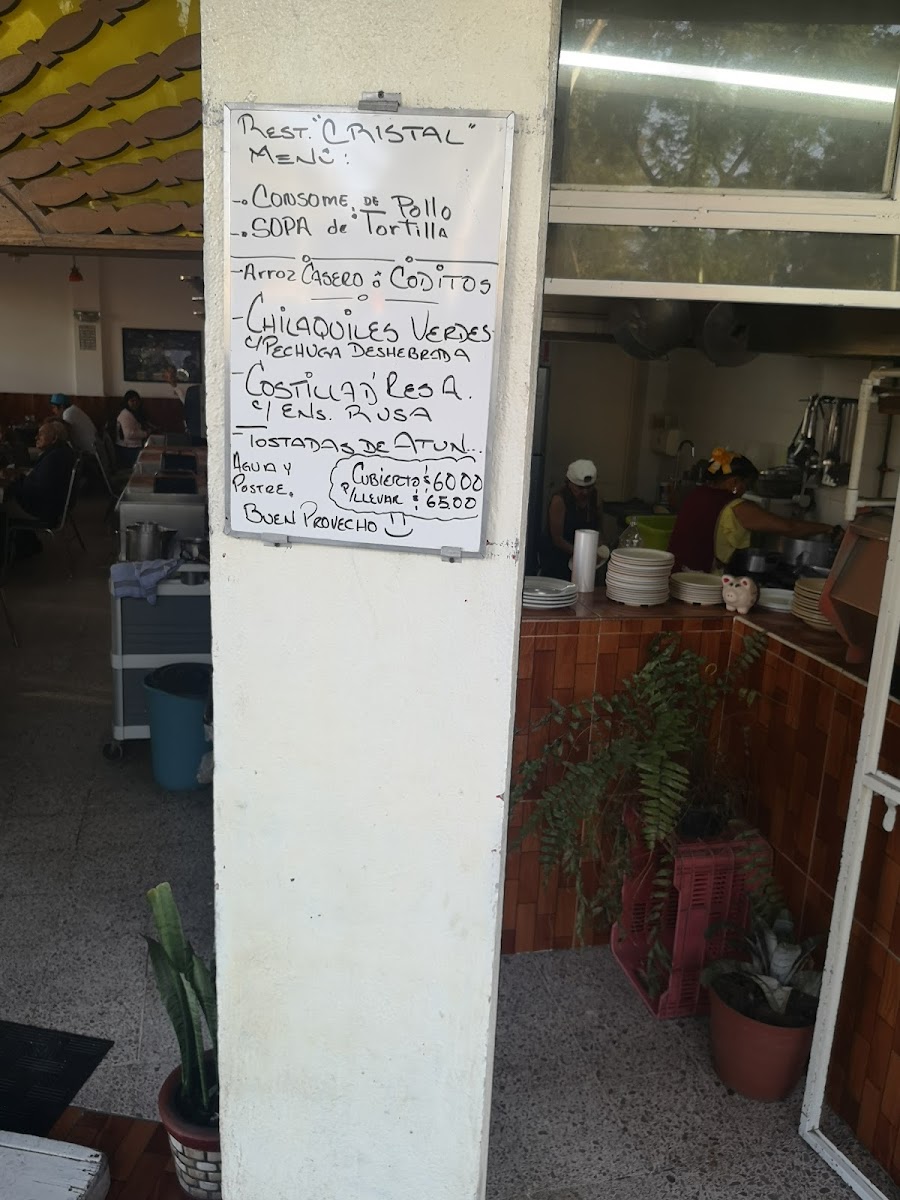 REST. "CRISTAL"
MENÚ:
-. CONSOME DE Pollo
-. SOPA de Tortilla
- Arroz CASERO ó CODITOS
- CHILAQUILES VERDES
C/PECHUGA DESHEBRADA
- COSTILLA D' RES A.
C/ ENS. RUSA
- TOSTADAS DE ATUN...
AGUA Y
POSTRE.
CUBIERTO $ 60 00
P/LLEVAR $ 65 00
BUEN PROVECHO